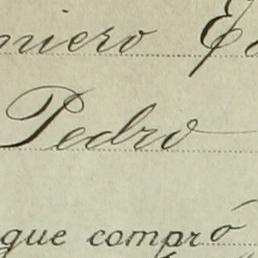 niero
Pedro
que compró